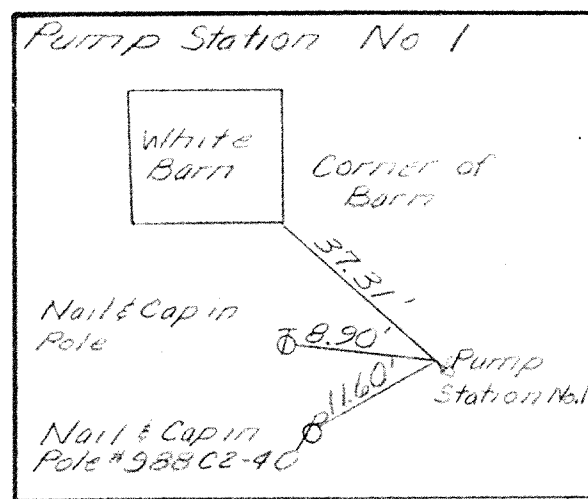 Pump Station No 1
White
Barn
Corner of
Barn
37.31'
Nail & Cap in
Pole
8.90'
Pump
Station No.1
11.60'
Nail & Cap in
Pole #988C2-40